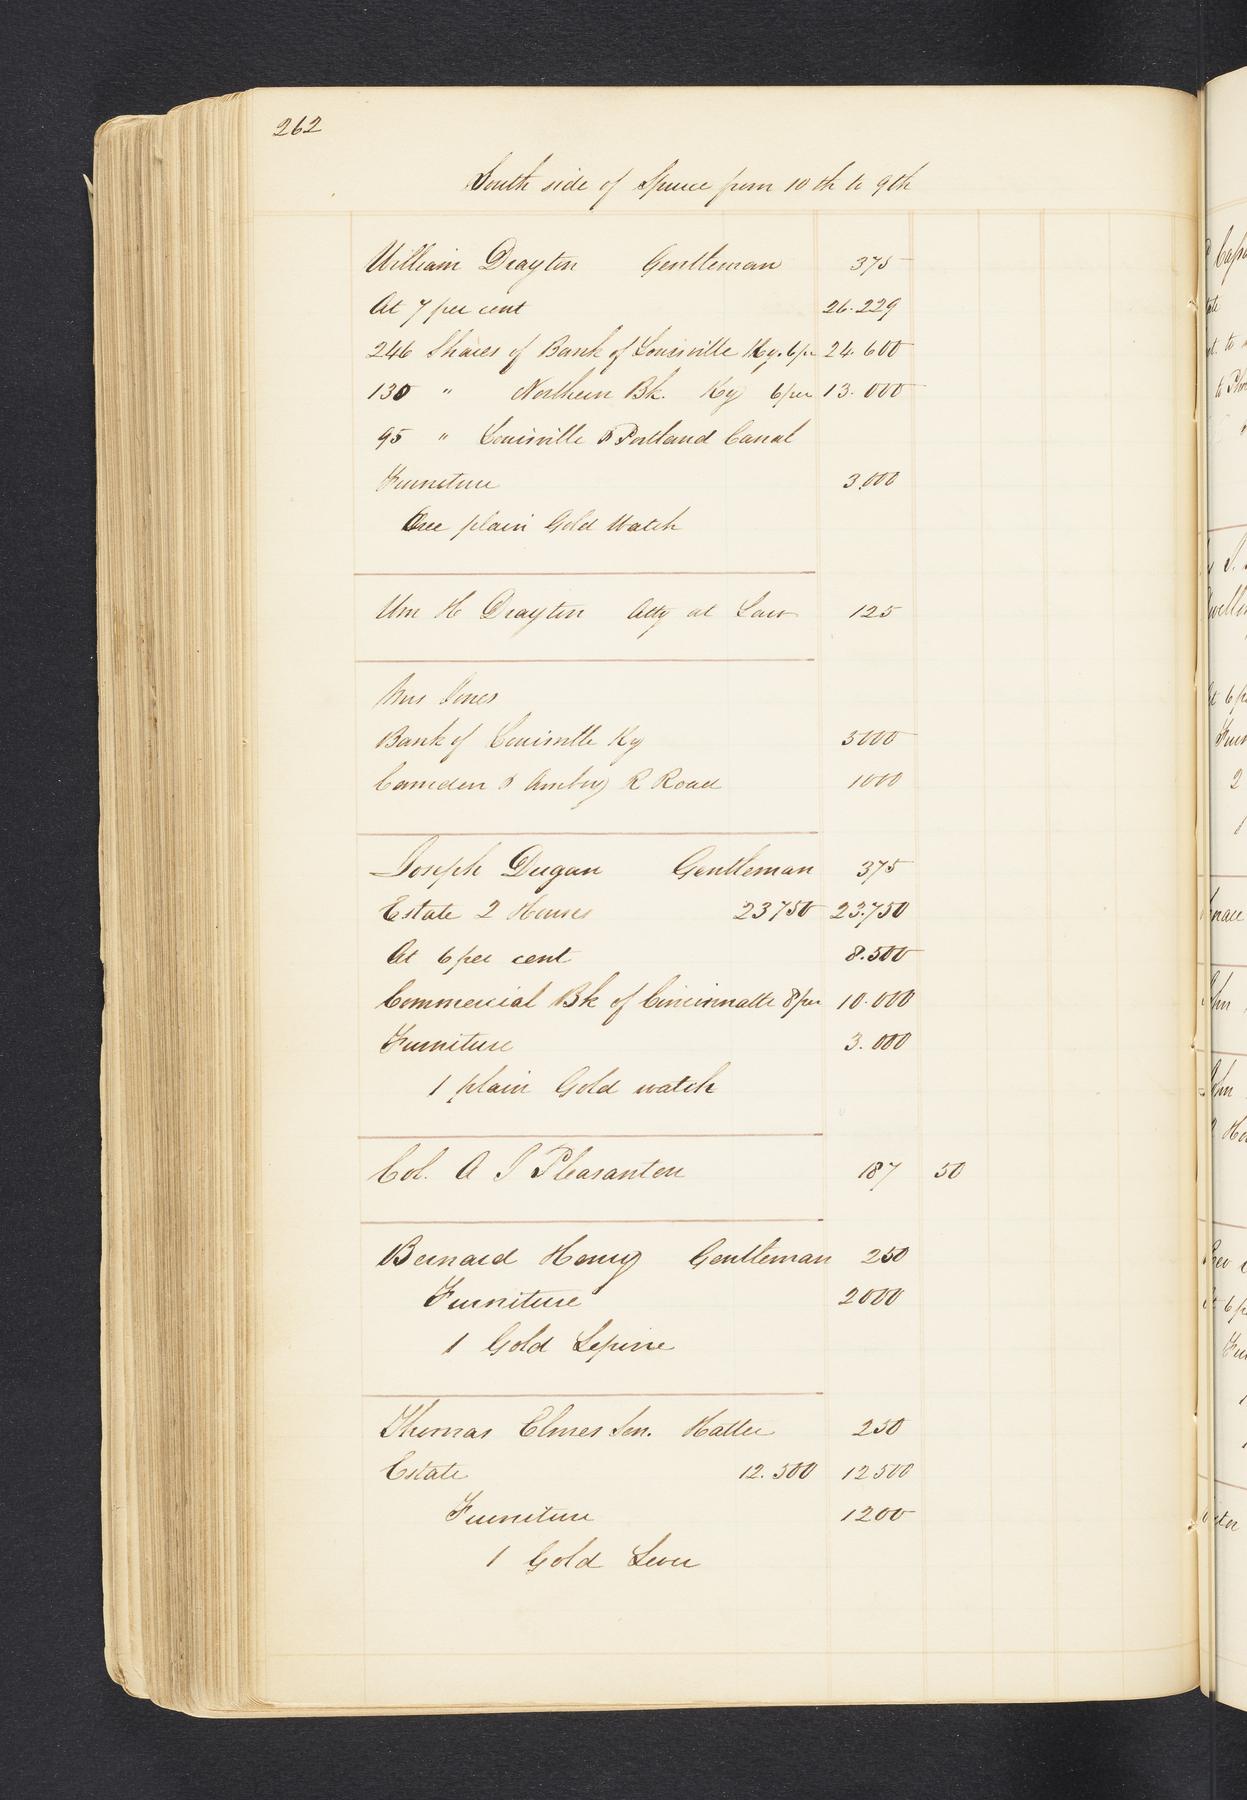 262
South side of Spruce from 10th to 9th
William Drayton Gentleman 375
At 7 per cent 26.229
246 Shares of Bank of Louisville Ky. 6 per 24.600
130 " Northern Bk. Ky 6 per 13.000
95 " Louisville & Portland Canal
Furniture 3.000
One plain Gold Watch
Wm H Drayton Atty at Law 125
Mrs Jones
Bank of Louisville Ky 3000
Camden & Amboy R Road 1000
Joseph Dugan Gentleman 375
Estate 2 Houses 23750 23.750
At 6 per cent 8.500
Commercial Bk of Cincinnatte 8 per 10.000
Furniture 3.000
1 plain Gold watch
Col. A J Pleasanton 187 50
Bernard Henry Gentleman 250
Furniture 2000
1 Gold Lepine
Thomas Elmes Sen. Hatter 250
Estate 12.500 12500
Furniture 1200
1 Gold Lever